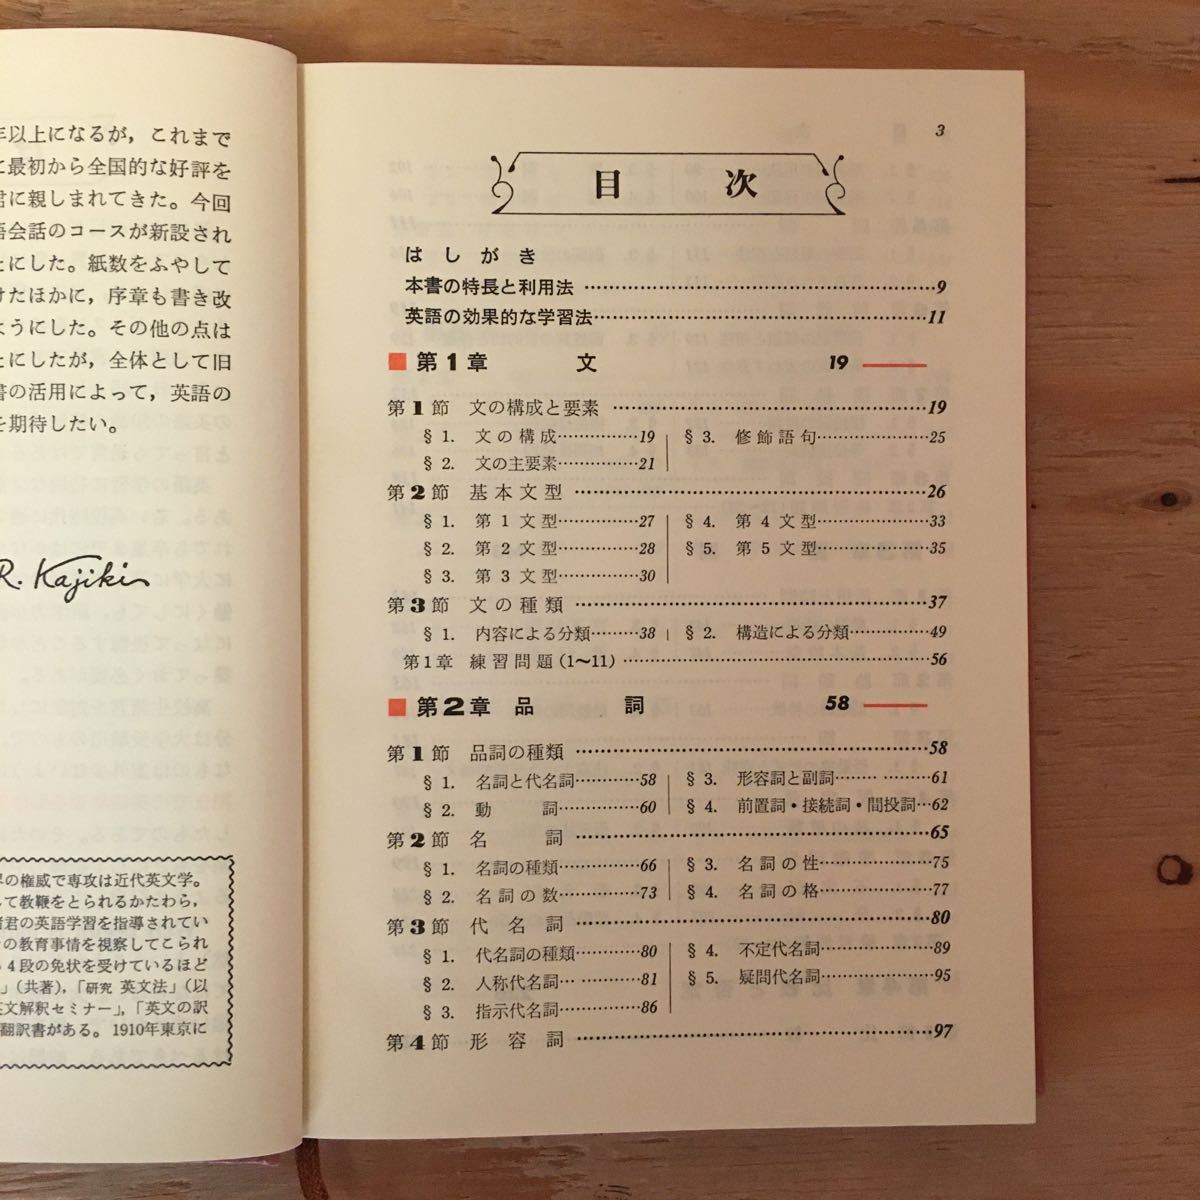 年以上になるが，これまで
に最初から全国的な好評を
君に親しまれてきた。今回
語会話のコースが新設され
とにした。紙数をふやして
けたほかに，序章も書き改
ようにした。その他の点は
とにしたが，全体として旧
書の活用によって，英語の
を期待したい。
R. Kajiki
界の権威で専攻は近代英文学。
して教鞭をとられるかたわら，
諸君の英語学習を指導されてい
の教育事情を視察してこられ
4段の免状を受けているほど
」(共著)，「研究 英文法」(以
英文解釈セミナー」，「英文の訳
翻訳書がある。1910年東京に
3
目 次
はしがき
本書の特長と利用法 9
英語の効果的な学習法 11
第1章 文 19
第1節 文の構成と要素 19
§ 1. 文の構成 19 § 3. 修飾語句 25
§ 2. 文の主要素 21
第2節 基本文型 26
§ 1. 第1文型 27 § 4. 第4文型 33
§ 2. 第2文型 28 § 5. 第5文型 35
§ 3. 第3文型 30
第3節 文の種類 37
§ 1. 内容による分類 38 § 2. 構造による分類 49
第1章 練習問題(1〜11) 56
第2章 品詞 58
第1節 品詞の種類 58
§ 1. 名詞と代名詞 58 § 3. 形容詞と副詞 61
§ 2. 動詞 60 § 4. 前置詞・接続詞・間投詞 62
第2節 名詞 65
§ 1. 名詞の種類 66 § 3. 名詞の性 75
§ 2. 名詞の数 73 § 4. 名詞の格 77
第3節 代名詞 80
§ 1. 代名詞の種類 80 § 4. 不定代名詞 89
§ 2. 人称代名詞 81 § 5. 疑問代名詞 95
§ 3. 指示代名詞 86
第4節 形容詞 97